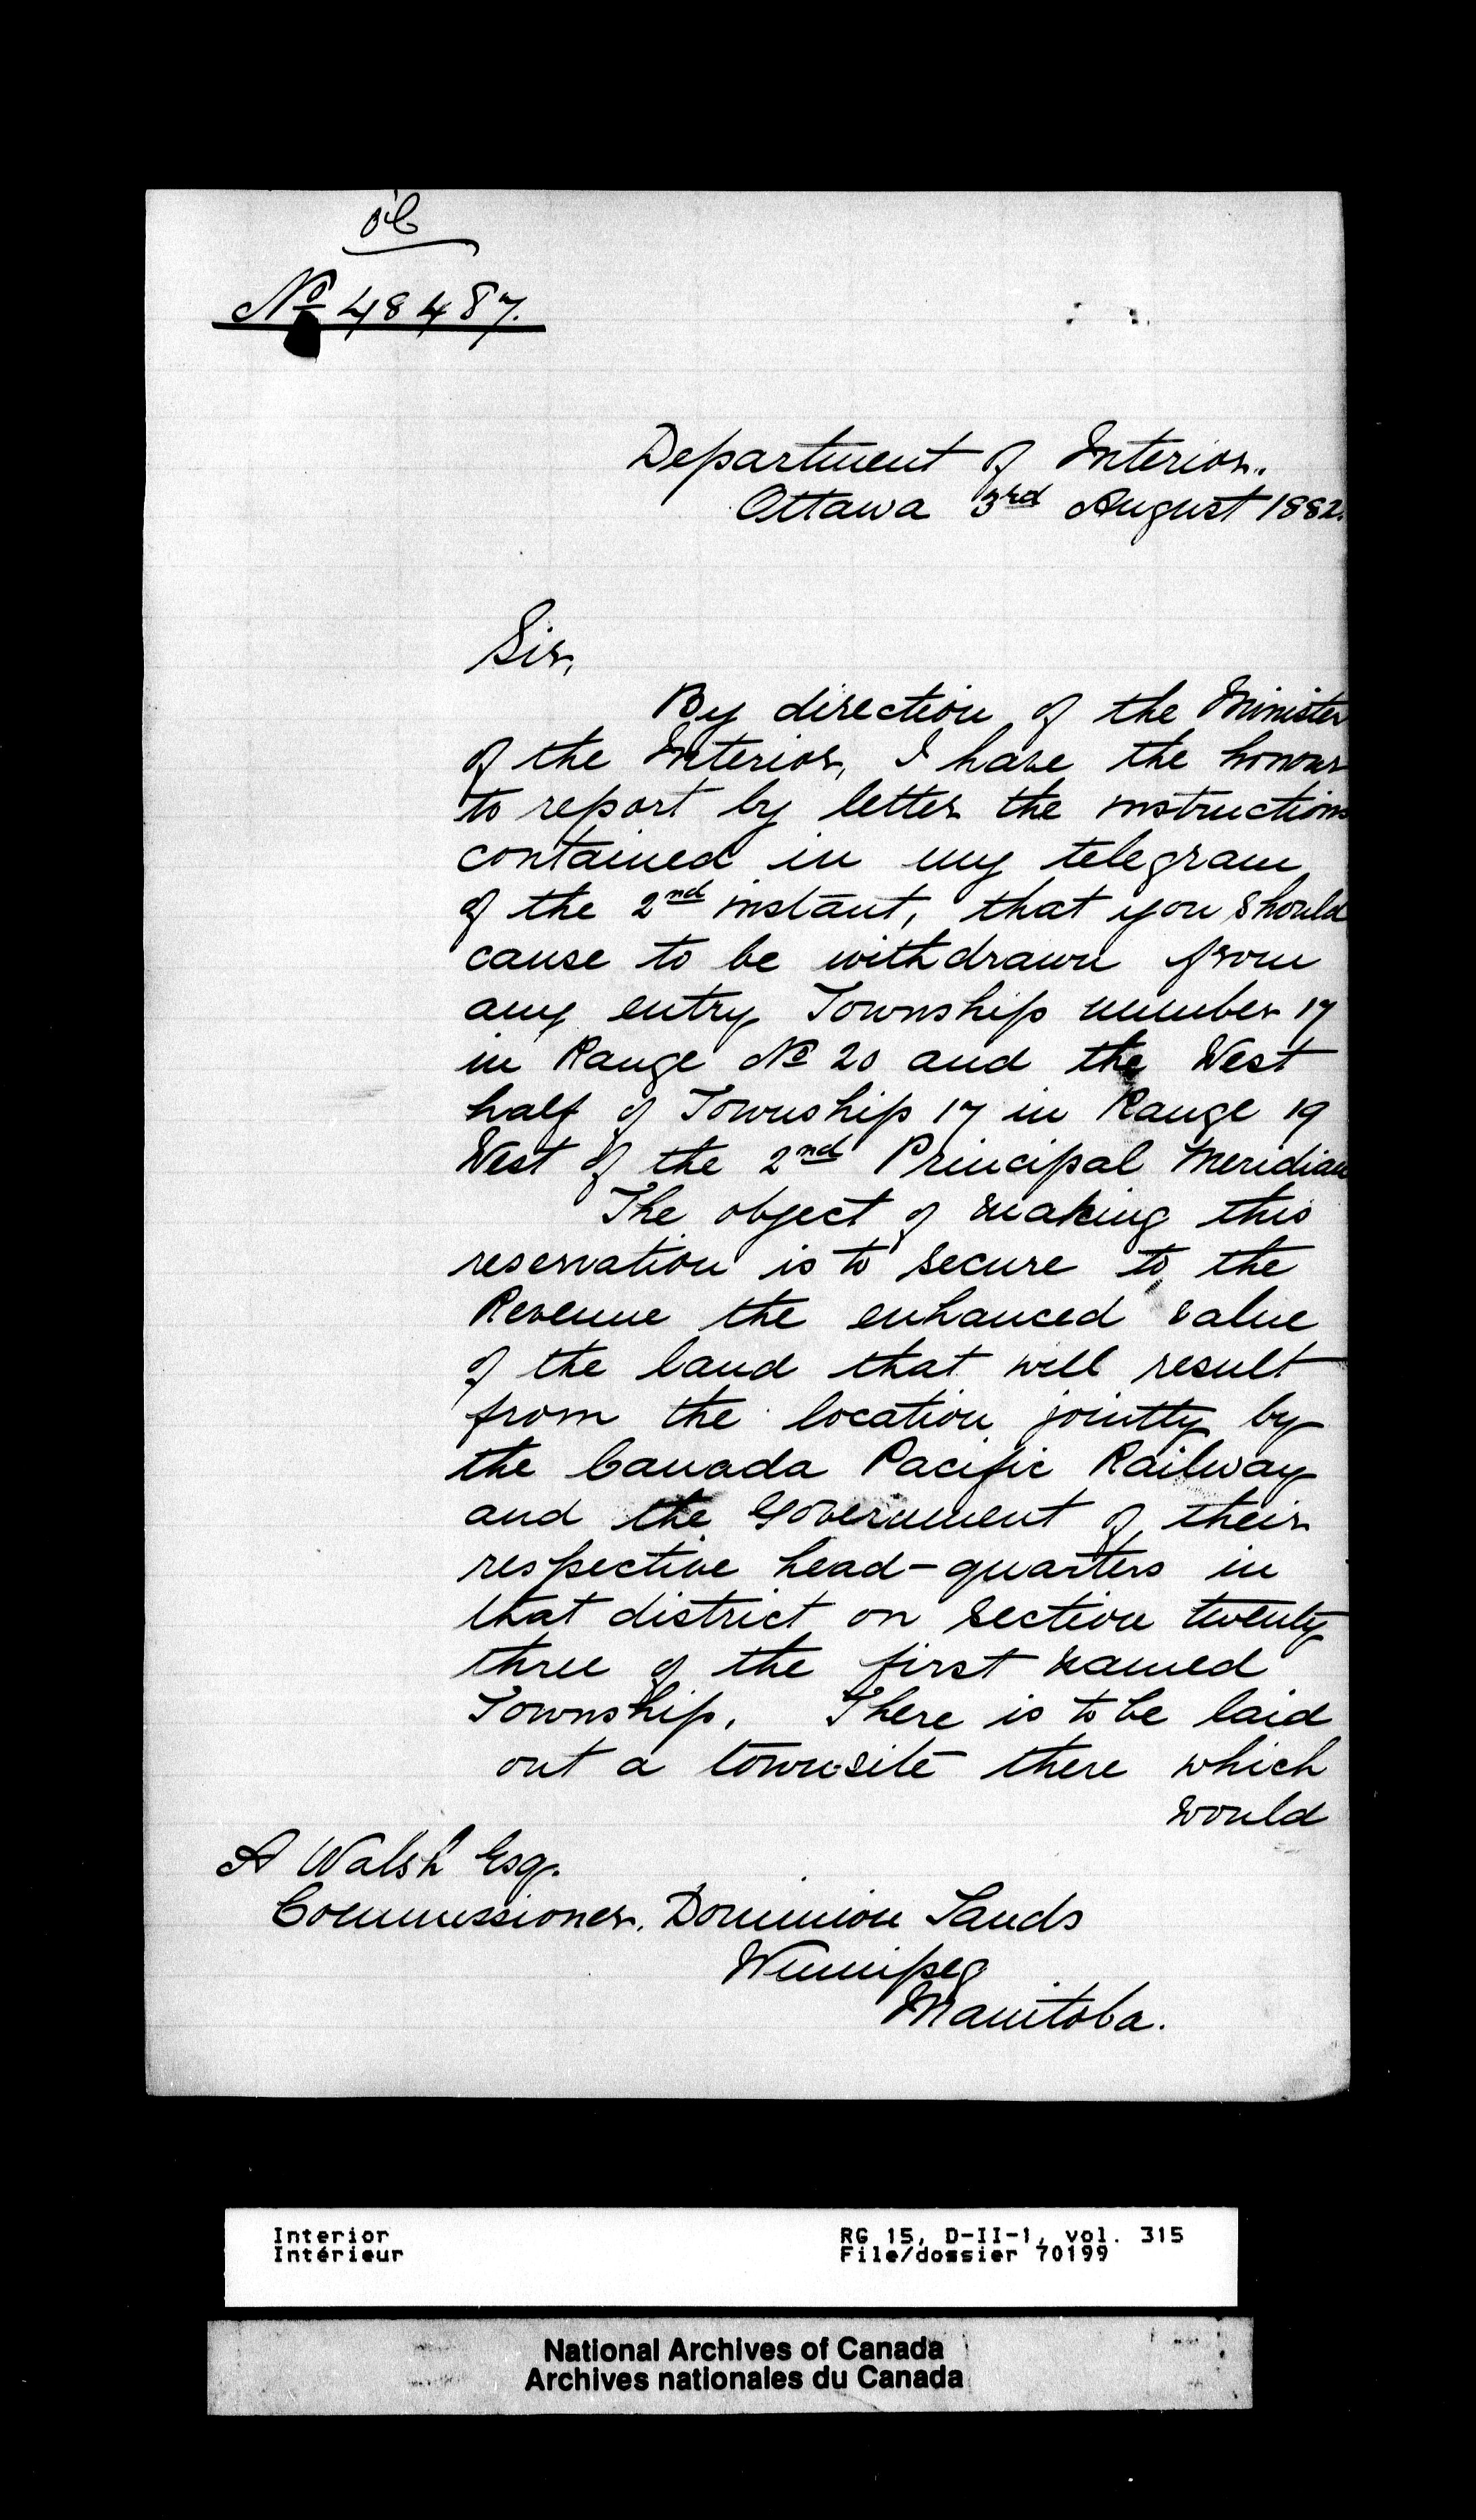 No 48487.
Department of Interior.
Ottawa 3rd August 1882.
Sir,
By direction of the Minister
of the Interior, I have the honour
to report by letter the instructions
contained in my telegram
of the 2nd instant, that you should
cause to be withdrawn from
any entry Township number 17
in Range No 20 and the West
half of Township 17 in Range 19
West of the 2nd Principal Meridian
The object of making this
reservation is to secure to the
Revenue the enhanced value
of the land that will result
from the location jointly by
the Canada Pacific Railway
and the Government of their
respective head-quarters in
that district on section twenty
three of the first named
Township. There is to be laid
out a townsite there which
would
A Walsh Esq.
Commissioner. Dominion Lands
Winnipeg
Manitoba.
Interior RG 15, D-II-1, vol. 315
Intérieur File/dossier 70199
National Archives of Canada
Archives nationales du Canada